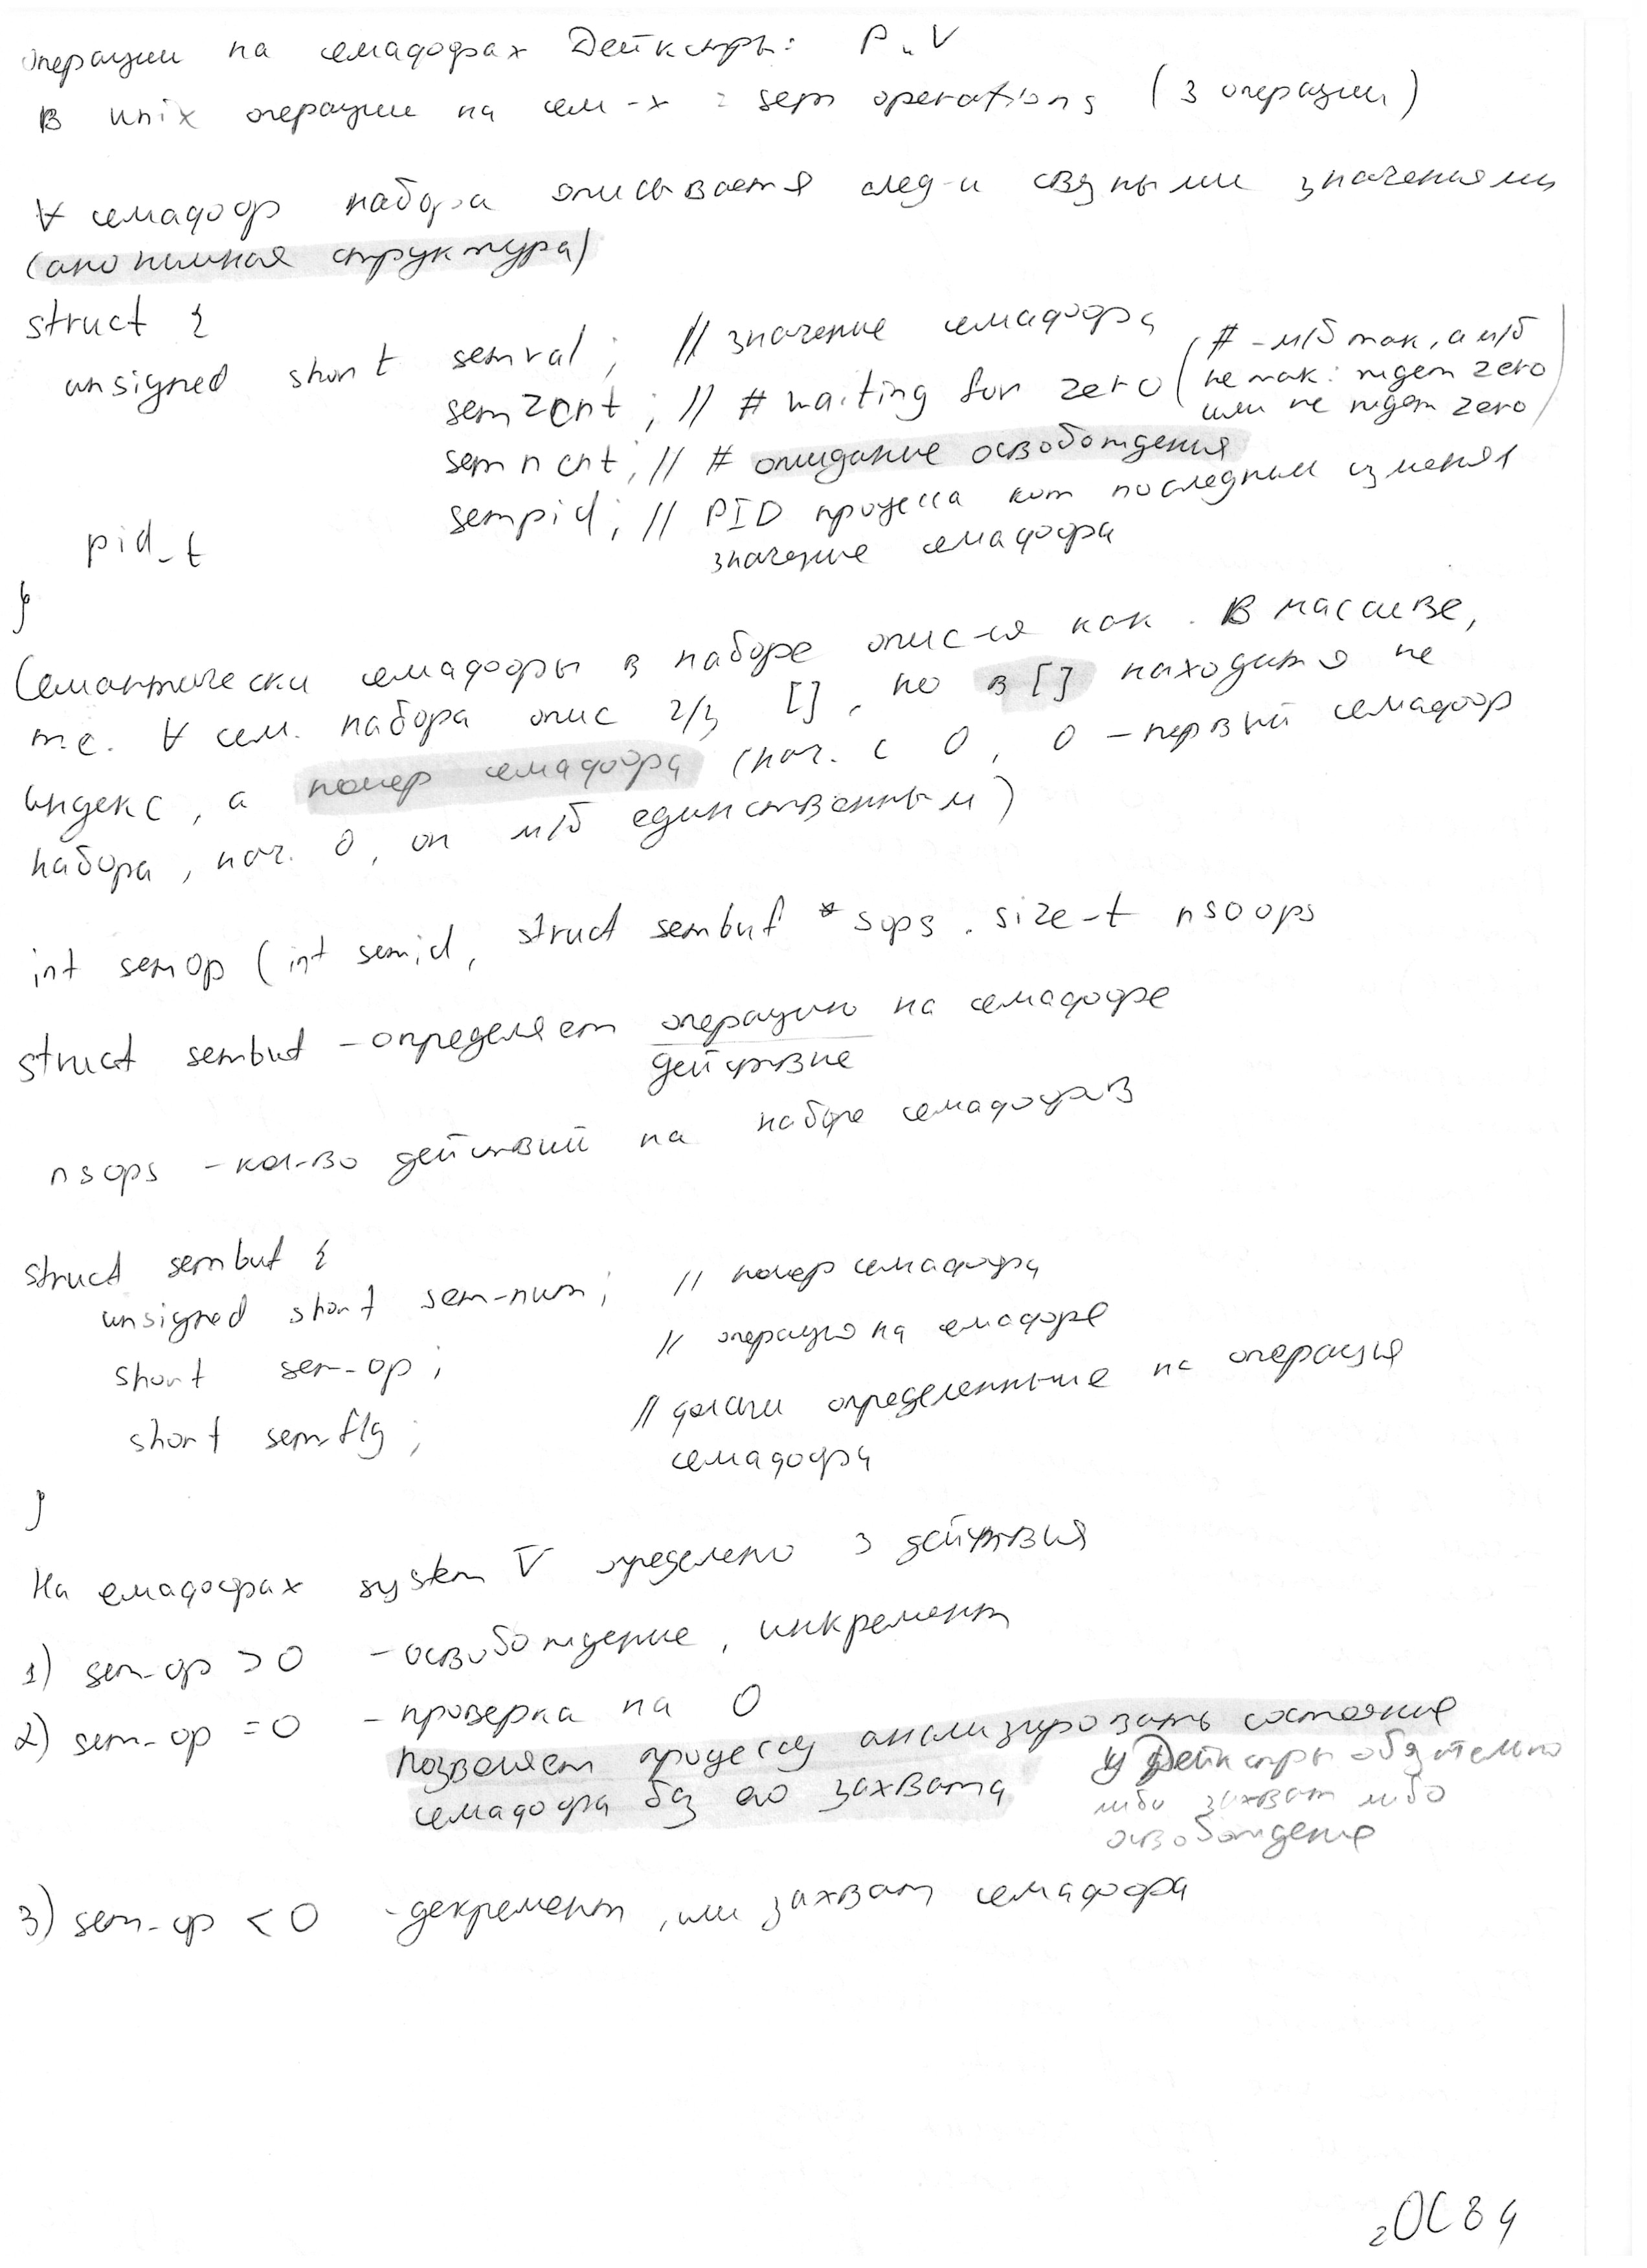 операции на семафорах Дейкстры: P и V
В unix операции на сем-х : sem operations (3 операции)
∀ семафор набора описывается след-и связными значениями
(анонимная структура)
struct {
unsigned short semval; // значение семафора
semzcnt; // # waiting for zero (# - м/б так, а м/б не так: ждет zero или не ждет zero)
semncnt; // # ожидание освобождения
pid_t sempid; // PID процесса кот последним изменял
значение семафора
}
Семантически семафоры в наборе опис-ся как. В массиве,
т.е. ∀ сем. набора опис ч/з [], но в [] находится не
индекс, а номер семафора (нач. с 0, 0 - первый семафор
набора, нач. 0, он м/б единственным)
int semop (int semid, struct sembuf *sops, size_t nsoops
struct sembuf - определяет операцию на семафоре
действие
nsops - кол-во действий на наборе семафоров
struct sembuf {
unsigned short sem-num; // номер семафора
short sem-op; // операцию на семафоре
short sem-flg; // флаги определенные на операция
семафора
}
На семафорах system V определено 3 действия
1) sem-op > 0 - освобождение, инкремент
2) sem-op = 0 - проверка на 0
позволяет процессу анализировать состояние
семафора без его захвата
У Дейкстры обязательно
либо захват либо
освобождение
3) sem-op < 0 - декремент, или захват семафора
2ОС84